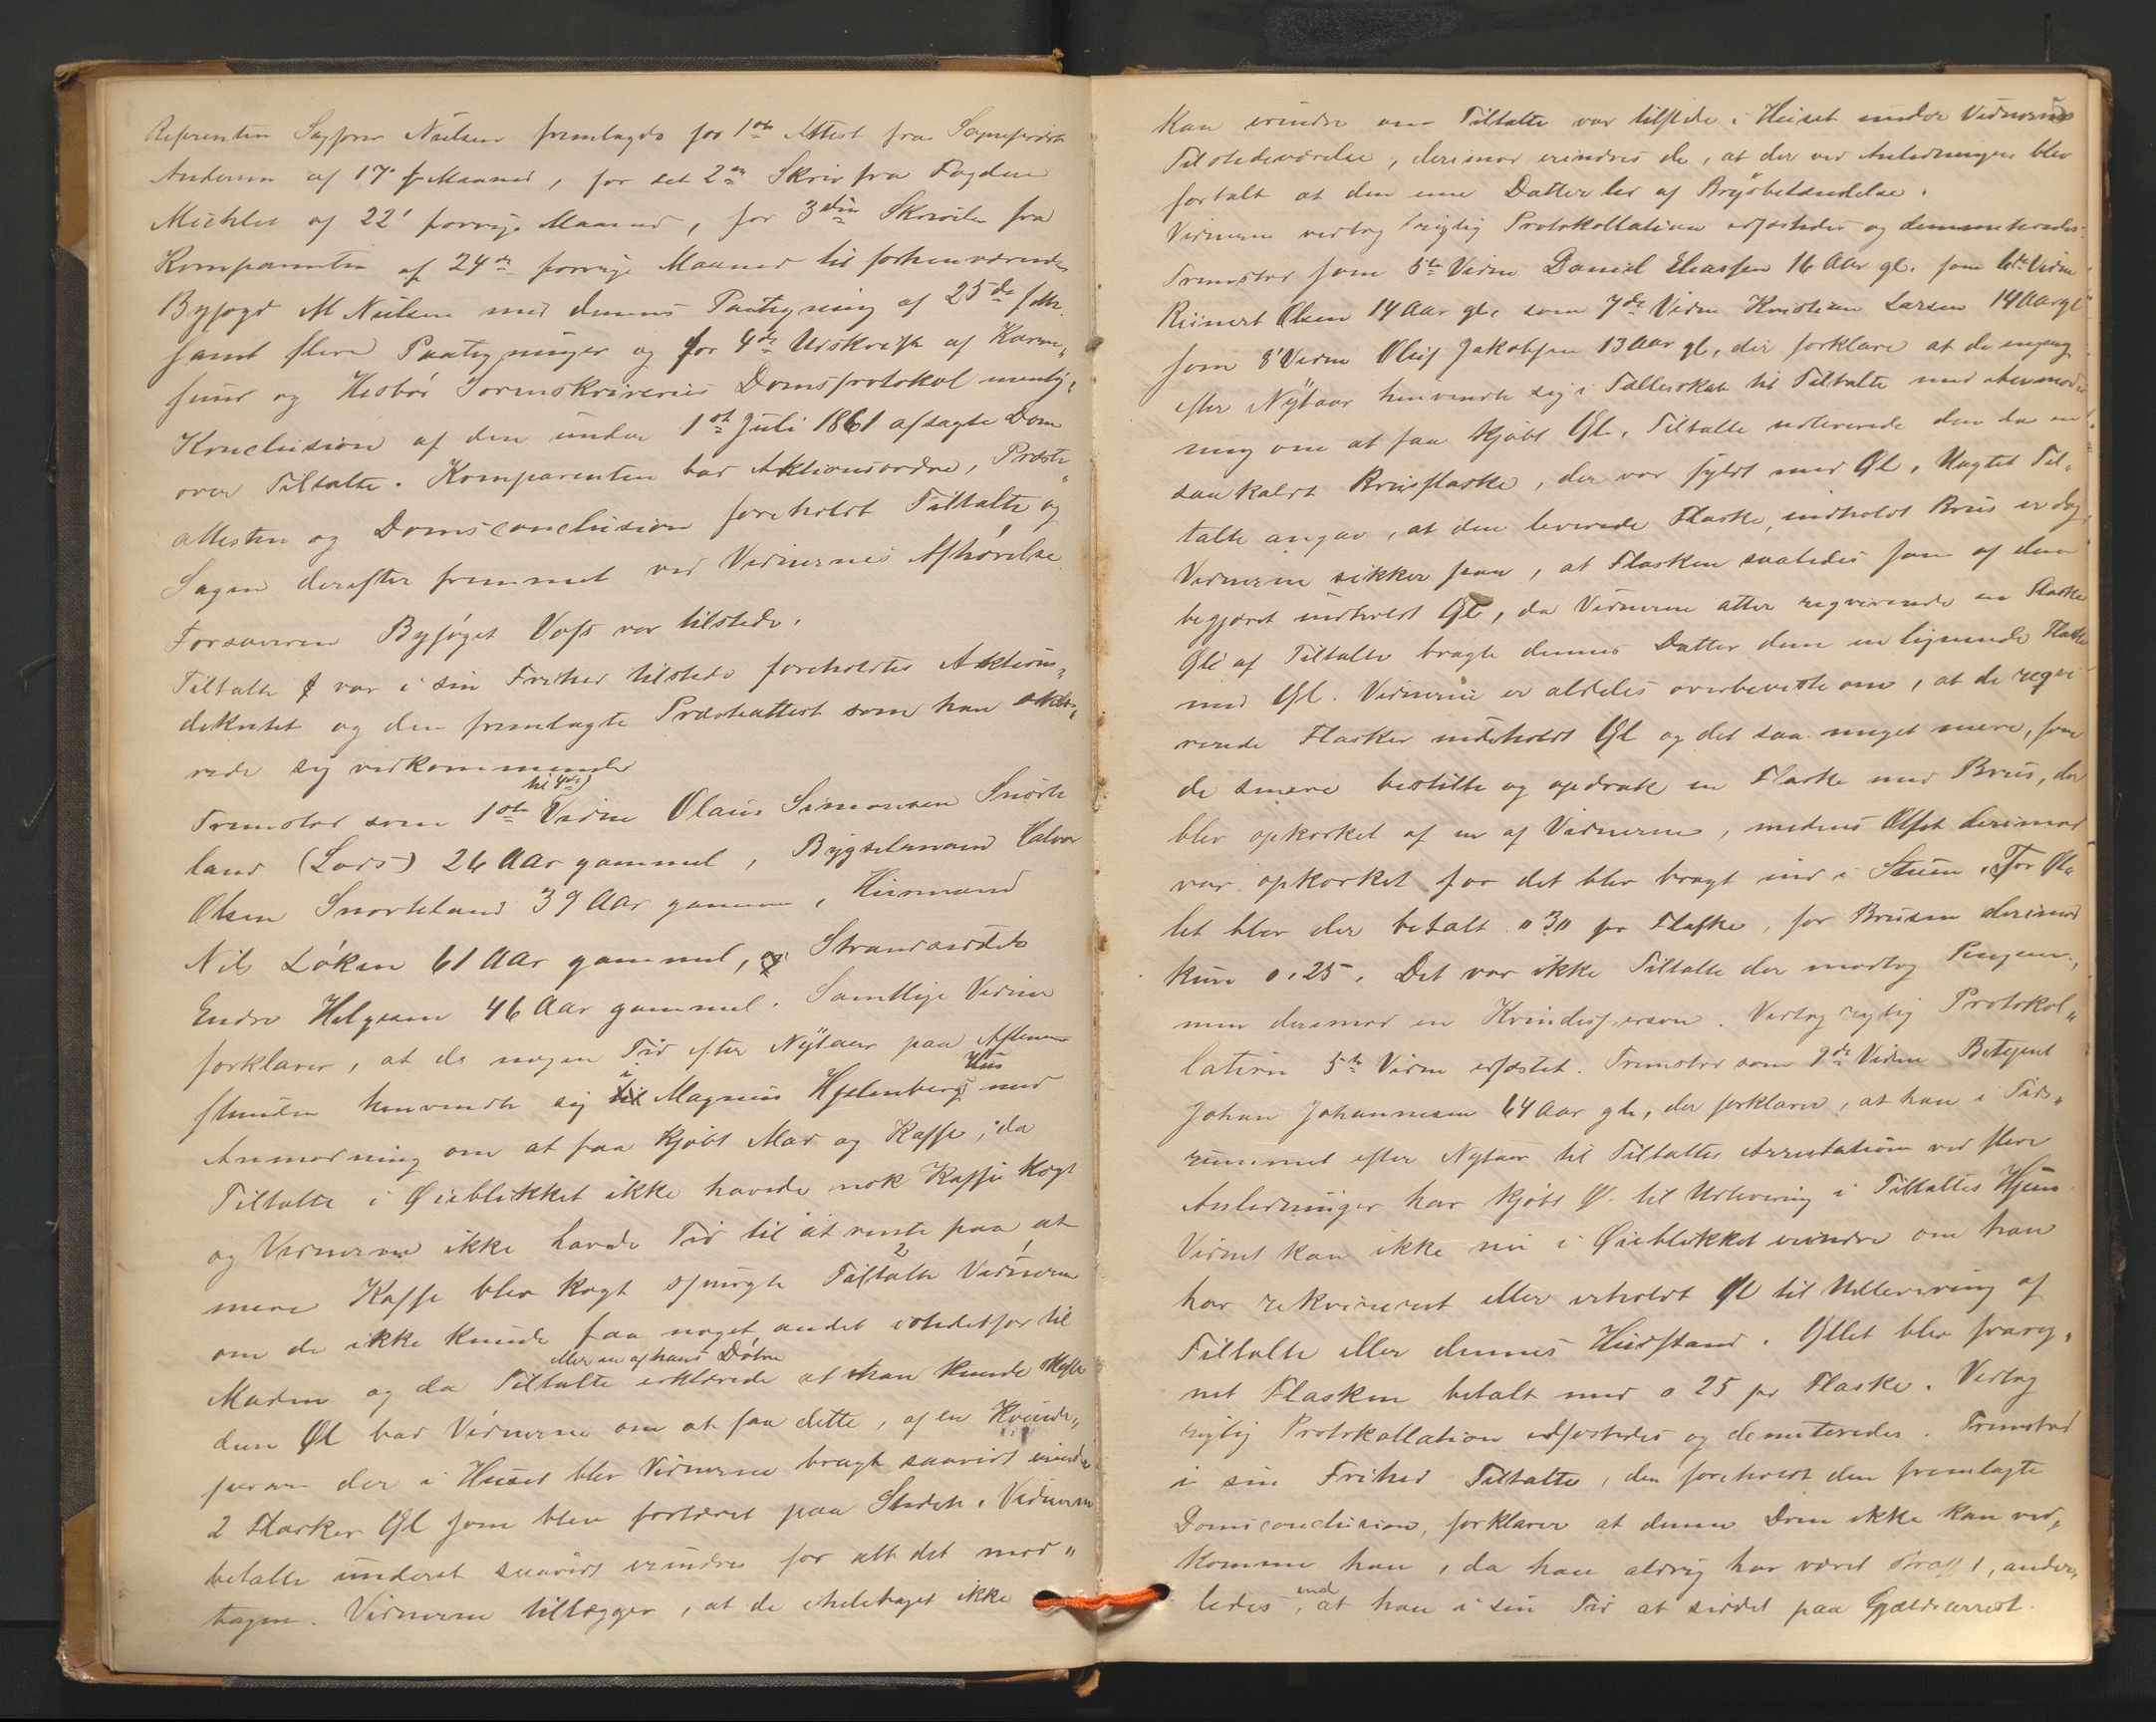 Referenten Sagfører Nielsen fremlagde for 1ste Attest fra Sognepræst
Andersen af 17' f Maaned, for det 2det Skriv fra Fogden
Michlet af 22' forrige Maaned, for 3die Skrivelse fra
Komparenten af 24de forrige Maaned til forhenværende
Byfogd M Nielsen med dennes Paategning af 25de f. M.
samt flere Paategninger og for 4de Udskrift af Karm„
sund og Hesbø Sorenskriveries Domsprotokol nemlig„
Konclusion af den under 1st Juli 1861 afsagte Dom
over Tiltalte. Komparenten bad Aktionsordre, Præste„
attesten og Domsconclusion foreholdt Tiltalte og
Sagen derefter fremmet ved Vidnernes Afhørelse.
Forsvareren Byfoget Voss var tilstede.
Tiltalte var i sin Frihed tilstede foreholdtes Aktions„
dekretet og den fremlagte Præsteattest som han erklæ„
rede sig vedkommende
Fremstod som 1ste til 4de) Vidne Olaus Simonsen Snorte
land (Lods) 26 Aar gammel, Bygselmand Halvor
Olsen Snorteland 39 Aar gammel, Husmand
Nils Løken 61 Aar gammel, og Strandsidder
Endre Helgesen 46 Aar gammel. Samtlige Vidne
forklarer, at de nogen Tid efter Nytaar paa Aftenen
stunden henvendte sig i Magnus Hyllenbergs Hus med
Anmodning om at faa kjøbt Mad og Kaffe; da
Tiltalte i Øieblikket ikke havde nok Kaffe kogt
og Vidnerne ikke havde Tid til at vente paa at
mere Kaffe blev kogt spurgte Tiltalte Vidnerne
om de ikke kunde faa noget andet istedetfor til
Maden og da Tiltalte eller en af hans Døtre erklærede at han kunde skaffe
dem Øl bad Vidnerne om at faa dette, af en Kvinde„
person der i Huset blev Vidnerne bragt saavidt erindres
2 Flasker Øl som blev fortæret paa Stedet. Vidnerne
betalte underet saavidt erindres for alt det mod„
tagne. Vidnerne tillægger, at de ikke
Kan erindre om Tiltalte var tilstede i Huset under Vidnernes
Tilstedeværelse, derimod erindres de, at der ved Anledningen blev
fortalt at den ene Datter led af Brystbetændelse.
Vidnerne vedtog rigtig Protokollation edfæstedes og demmiteredes
Fremstod som 5te Vidne Daniel Eliassen 16 Aar gl. som 6te Vidne
Reinert Olsen 14 Aar gl. som 7de Vidne Kristian Larsen 14 Aar gl
som 8' Vidne Oluf Jakobsen 13 Aar gl, der forklare at de engang
efter Nytaar henvendte sig i Fællesskab til Tiltalte med Anmod„
ning om at faa kjøbt Øl. Tiltalte udleverede dem da en
saakaldt Brusflaske, der var fyldt med Øl. Uagtet Til„
talte angav, at den leverede Flaske, indholdt Brus er dog
Vidnerne sikker paa, at Flasken saaledes som af dem
begjæret indholdt Øl, da Vidnerne atter reqvirerede en Flaske
Øl af Tiltalte bragte dennes Datter dem en lignende Flaske
med Øl. Vidnerne er aldeles overbeviste om, at de reqvi
rerede Flasker indeholdt Øl og det saa meget mere, som
de senere bestilte og opdrak en Flaske med Brus, der
blev opkorket af en af Vidnerne, medens Øllet derimod
var opkorket før det blev bragt ind i Stuen. For Øl„
let blev der betalt „ 30 pr Flaske, for Brusen derimod
kun 0.25. Det var ikke Tiltalte der modtog Pengene,
men derimod en Kvindeperson. Vedtog rigtig Protokol„
lation 5te Vidne edfæstet. Fremstod som 9de Vidne Betjent
Johan Johannesen 64 Aar gl, der forklarer, at han i Tids„
rummet efter Nytaar til Tiltaltes Arrestation ved flere
Anledninger har kjøbt Øl til Udlevering i Tiltaltes Hjem
Vidnet kan ikke nu i Øieblikket erindre om han
har rekvireret eller erholdt Øl til Udlevering af
Tiltalte eller dennes Husstand. Øllet blev frareg„
net Flasken betalt med 0 25 pr Flaske. Vedtog
rigtig Protokollation edfæstedes og demiteredes. Fremstod
i sin Frihed Tiltalte, der foreholdt den fremlagte
Domsconclusion, forklarer at denne Dom ikke kan ved„
komme han, da han aldrig har været straffet, ander„
ledes, end at han i sin Tid at siddet paa Gjældsarrest.